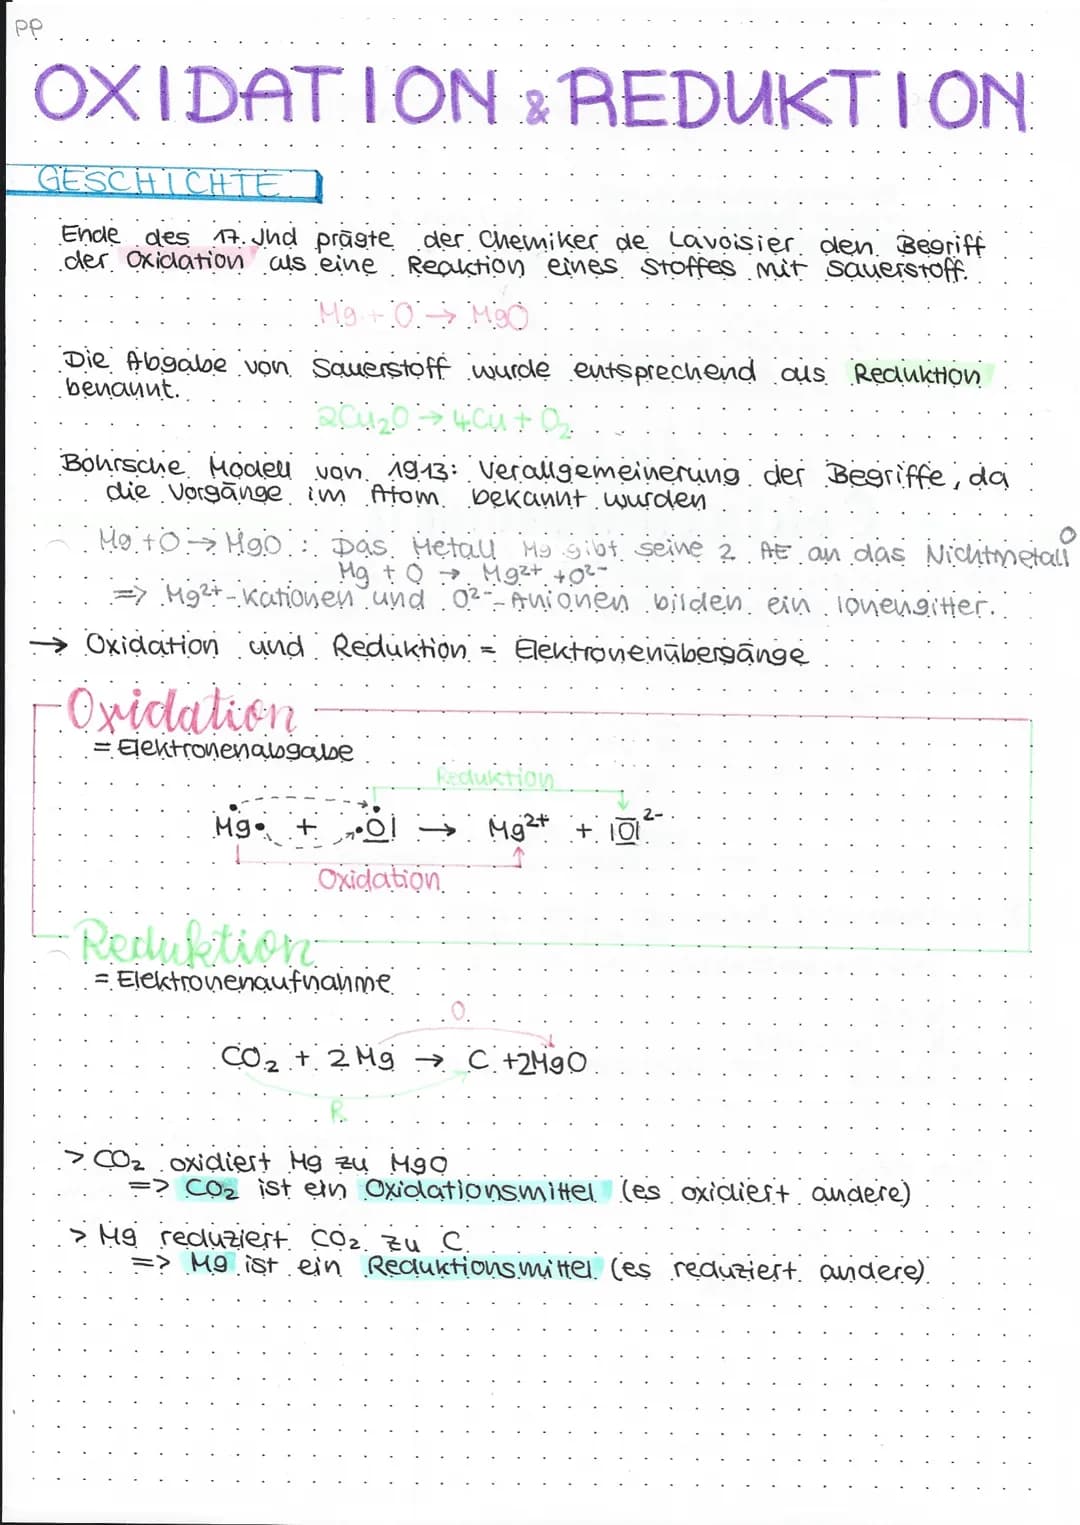 PP
OXIDATION & REDUKTION
GESCHICHTE
Ende des 17. Jhd prägte der Chemiker de Lavoisier den Begriff
der Oxidation als eine Reaktion eines Stoffes mit Sauerstoff.
Mg + O → MgO
Die Abgabe von Sauerstoff wurde entsprechend als Reduktion
benannt.
2Cu₂O → 4Cu + O₂
Bohrsche Modell von 1913: Verallgemeinerung der Begriffe, da
die Vorgänge im Atom bekannt wurden
Mg + O → MgO : Das Metall Mg gibt seine 2 AE an das Nichtmetall O
Mg + O → Mg²⁺ + O²⁻
=> Mg²⁺-Kationen und O²⁻-Anionen bilden ein Ionengitter.
→ Oxidation und Reduktion = Elektronenübergänge
Oxidation
= Elektronenabgabe
Reduktion
Mg + O → Mg²⁺ + |O|²⁻
Oxidation
Reduktion
= Elektronenaufnahme
O
CO₂ + 2 Mg → C + 2MgO
R
> CO₂ oxidiert Mg zu MgO
=> CO₂ ist ein Oxidationsmittel (es oxidiert andere)
> Mg reduziert CO₂ zu C
=> Mg ist ein Reduktionsmittel (es reduziert andere)